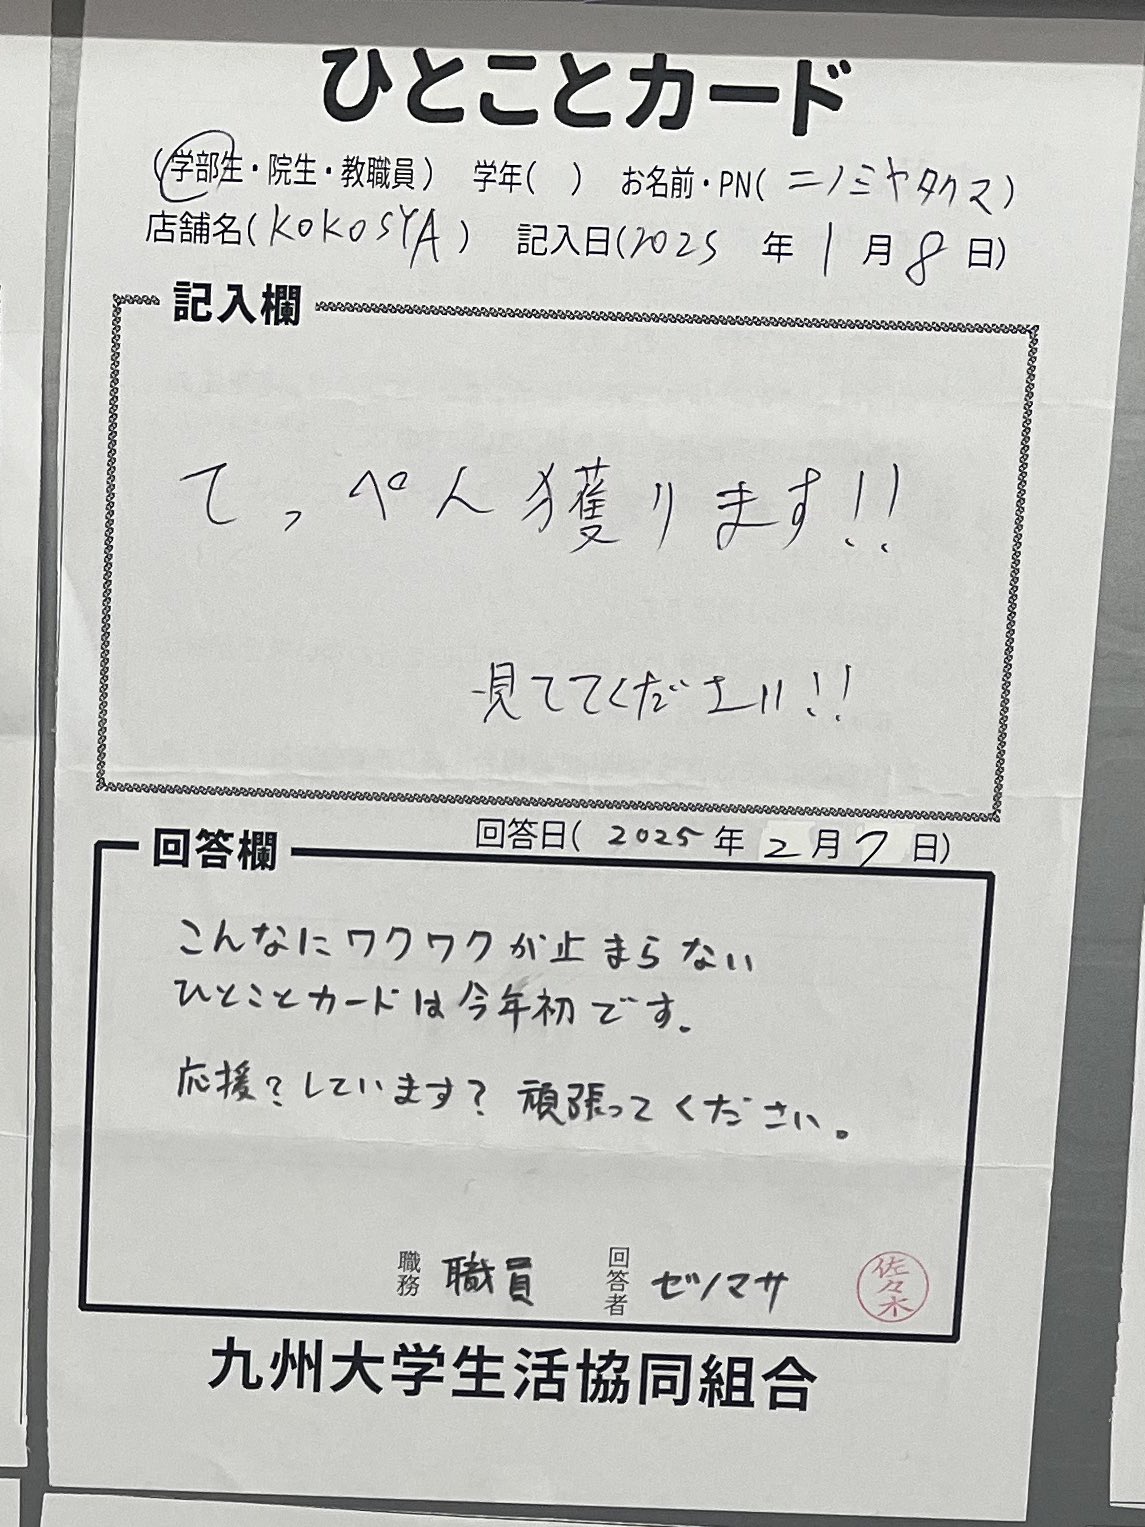 ひとことカード
(学部生・院生・教職員) 学年( ) お名前・PN(ニノミヤタクマ)
店舗名(KOKOSYA) 記入日(2025 年 1 月 8 日)
記入欄
てっぺん獲ります!!
見ててください!!
回答日( 2025 年 2 月 7 日)
回答欄
こんなにワクワクが止まらない
ひとことカードは今年初です。
応援?しています? 頑張ってください。
職務 職員 回答者 ゼソマサ 佐々木
九州大学生活協同組合